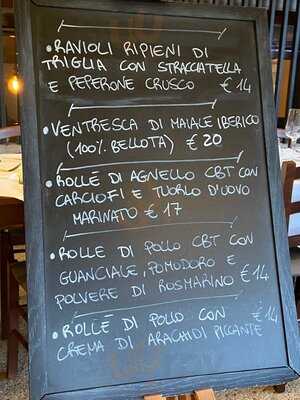 • RAVIOLI RIPIENI DI
TRIGLIA CON STRACCIATELLA
E PEPERONE CRUSCO € 14
• VENTRESCA DI MAIALE IBERICO
(100% BELLOTA) € 20
• ROLLÈ DI AGNELLO CBT CON
CARCIOFI E TUORLO D'UOVO
MARINATO € 17
• ROLLE DI POLLO CBT CON
GUANCIALE, POMODORO E
POLVERE DI ROSMARINO € 14
• ROLLÈ DI POLLO CON € 14
CREMA DI ARACHIDI PICCANTE